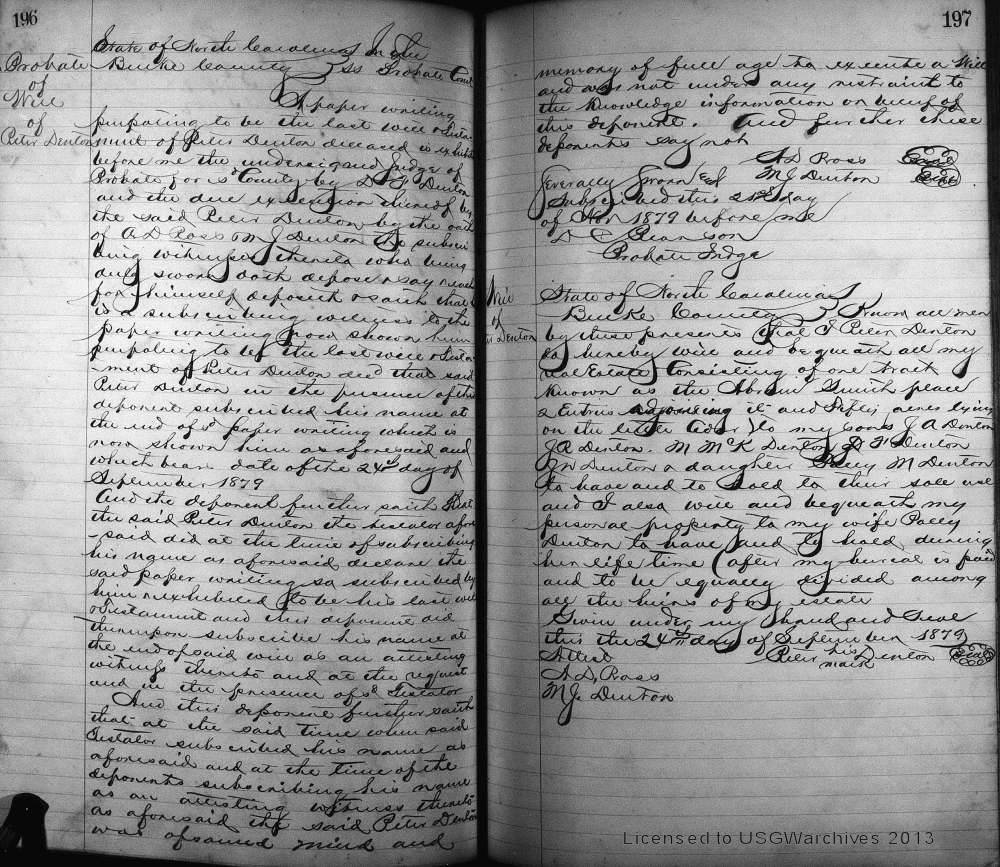 196
State of North Carolina } In the
Burke County } SS Probate Court
Probate
of
Will
of
Peter Denton
A paper writing
purpoting to be the last will & Testa-
ment of Peter Denton deceased is exhibited
before me the undersigned Judge of
Probate for sd County by D H Denton
and the due execution thereof by
the said Peter Denton by the oath
of A D Ross & M J Denton the subscri
bing witnesses thereto who being
duly sworn doth depose & say & each
for himself deposeth & saith that he
is a subscribing witness to the
paper writing now shown him
purpoting to be the last will & Testa
-ment of Peter Denton decd that said
Peter Denton in the presence of this
deponent subscribed his name at
the end of sd paper writing which is
now shown him as aforesaid and
which bears date of the 24th day of
September 1879
And the deponent further saith that
the said Peter Denton the testator afore
-said did at the time of subscribing
his name as aforesaid declare the
said paper writing so subscribed by
him & exhibited to be his last will
& testament and this deponent did
thereupon subscribe his name at
the end of said will as an attesting
witness thereto and at the request
and in the presence of sd Testator
And this deponent further saith
that at the said time when said
Testator subscribed his name as
aforesaid and at the time of the
deponents subscribing his name
as an attesting witness thereto
as aforesaid the said Peter Denton
was of sound mind and
197
memory of full age to execute a Will
and was not under any restraint to
the Knowledge information or belief of
this deponent. And further these
deponents say not
A D Ross Seal
M J Denton Seal
Severally sworn and
Subscribed this 21st day
of Nov 1879 before me
Pearson
Probate Judge
Will
of
Denton
State of North Carolina }
Burke County } Know all men
by these presents that I Peter Denton
do hereby will and bequeath all my
real Estate Consisting of one tract
Known as the Smith place
& Entries adjoining it and Fifty acres lying
on the to my sons J A Denton
J R Denton. M McK Denton D H Denton
Denton & daughter M Denton
to have and to hold to their sole use
and I also will and bequeath my
personal property to my wife Polly
Denton to have and to hold during
her life time (after my burial is paid
and to be equally divided among
all the heirs of my estate
Given under my hand and Seal
this the 24th day of September 1879
Attest
Peter his mark Denton Seal
A D Ross
M J Denton
Licensed to USGWarchives 2013